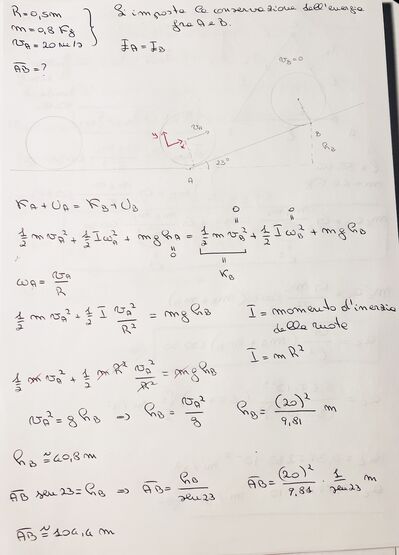 R = 0,5m
m = 0,8 Kg
v_A = 20 m/s
Si imposta la conservazione dell'energia
fra A e B.
E_A = E_B
AB = ?
v_B = 0
v_A
y
x
23°
A
B
h_B
K_A + U_A = K_B + U_B
1/2 m v_A² + 1/2 I ω_A² + m g h_A = 1/2 m v_B² + 1/2 I ω_B² + m g h_B
0
0
0
K_B
ω_A = v_A/R
1/2 m v_A² + 1/2 I v_A²/R² = m g h_B
I = momento d'inerzia
della ruota
I = m R²
1/2 m v_A² + 1/2 m R² v_A²/R² = m g h_B
v_A² = g h_B ⇒ h_B = v_A²/g h_B = (20)²/9,81 m
h_B ≈ 40,8 m
AB sen 23 = h_B ⇒ AB = h_B/sen 23 AB = (20)²/9,81 · 1/sen 23 m
AB ≈ 104,4 m